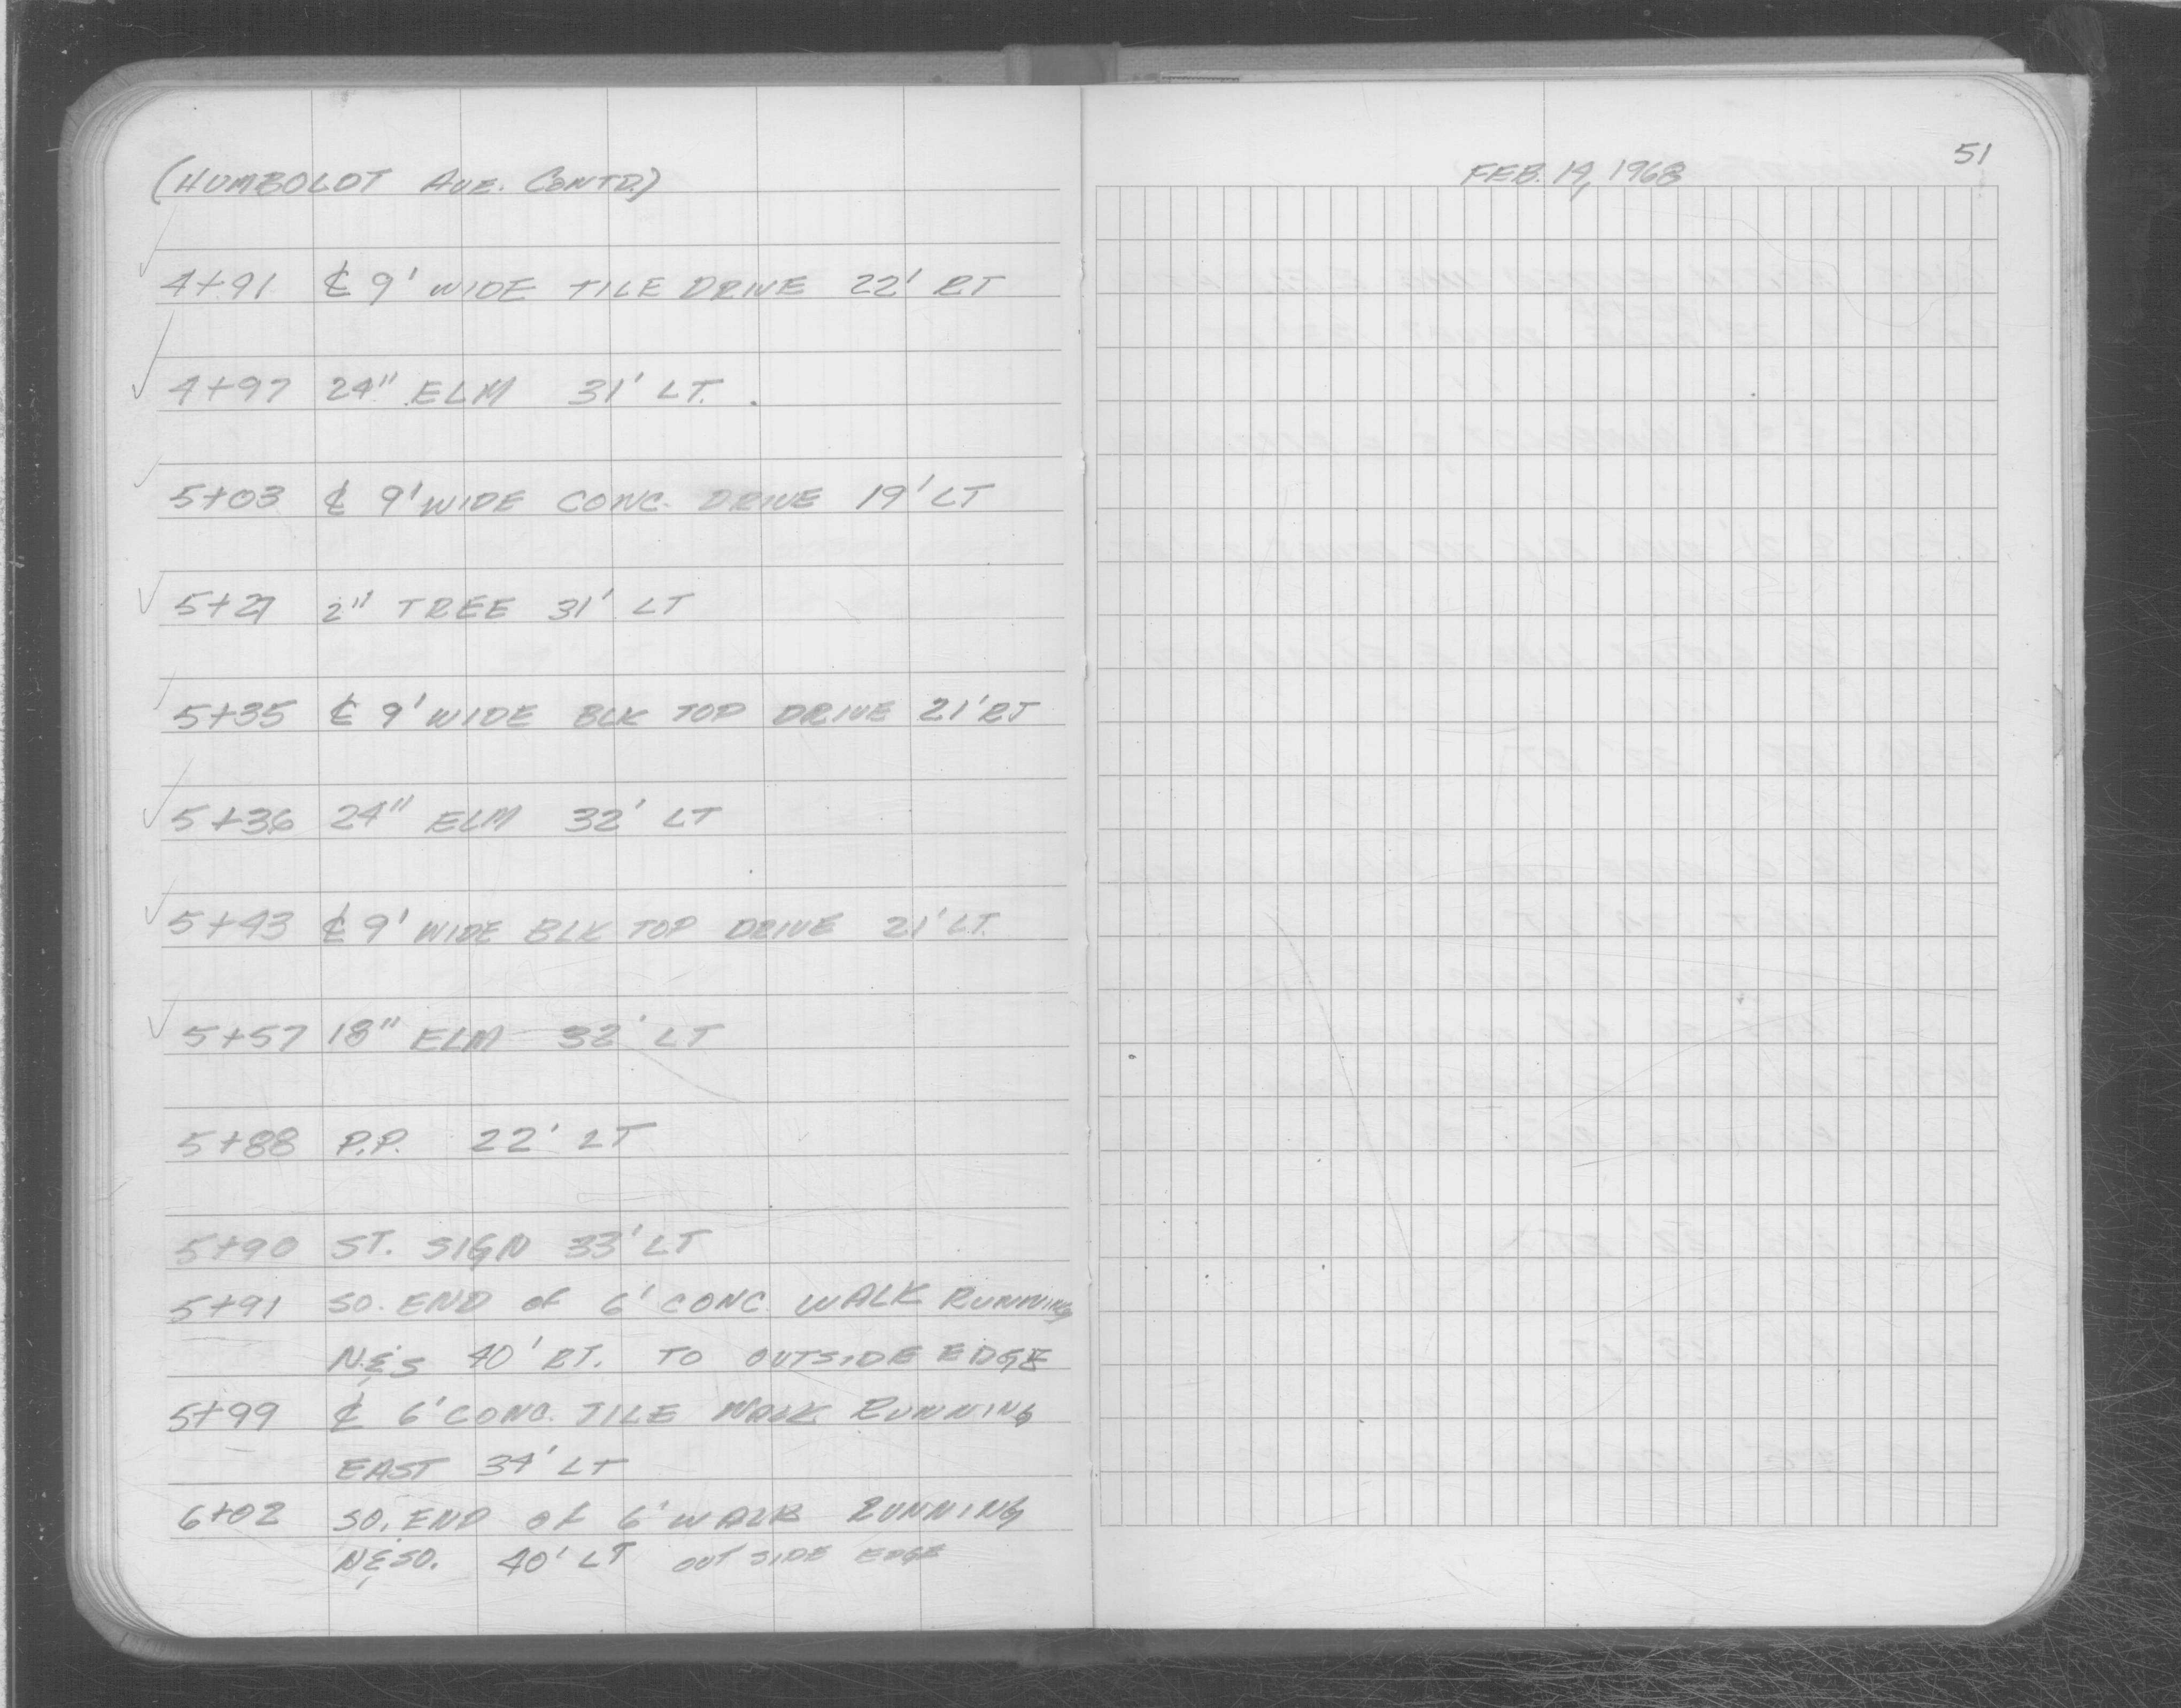 (HUMBOLDT AVE. CONTD.)
4+91 ℄ 9' WIDE TILE DRIVE 22' RT
4+97 24" ELM 31' LT.
5+03 ℄ 9' WIDE CONC. DRIVE 19' LT
5+27 2" TREE 31' LT
5+35 ℄ 9' WIDE BLK TOP DRIVE 21' RT
5+36 24" ELM 32' LT
5+43 ℄ 9' WIDE BLK TOP DRIVE 21' LT.
5+57 18" ELM 32' LT
5+88 P.P. 22' LT
5+90 ST. SIGN 33' LT
5+91 SO. END of 6' CONC. WALK RUNNING
N.&S 40' RT. TO OUTSIDE EDGE
5+99 ℄ 6' CONC. TILE WALK RUNNING
EAST 34' LT
6+02 SO. END of 6' WALK RUNNING
N&SO. 40' LT OUTSIDE EDGE
51
FEB. 14, 1968